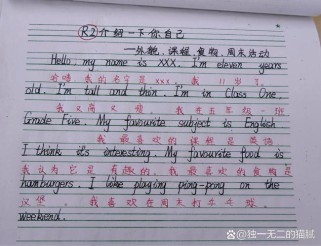 R2介绍一下你自己
—外貌,课程,食物,周末活动
Hello, my name is XXX. I'm eleven years
哈喽 我的名字是 xxx, 我 11 岁了.
old. I'm tall and thin. I'm in Class One,
我又高又瘦. 我在五年级一班
Grade Five. My favourite subject is English
我最喜欢的课程是英语
I think it's interesting. My favourite food is
我认为它是有趣的. 我最喜欢的食物是
hamburgers. I like playing ping-pong on the
汉堡. 我喜欢在周末打乒乓球.
weekend.
@独一无二的猫腻